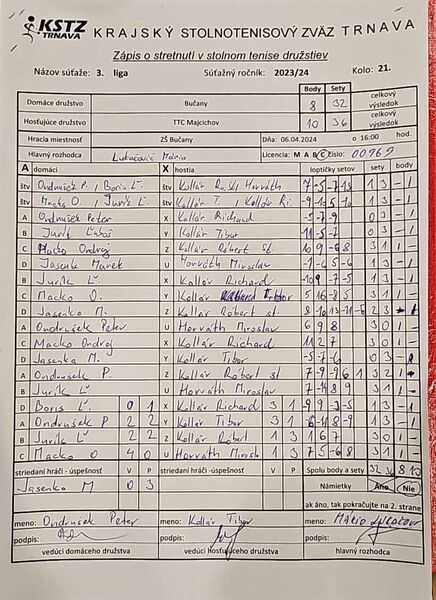 KSTZ TRNAVA KRAJSKÝ STOLNOTENISOVÝ ZVÄZ TRNAVA
Zápis o stretnutí v stolnom tenise družstiev
Názov súťaže: 3. liga Súťažný ročník: 2023/24 Kolo: 21.
Body Sety
Domáce družstvo Bučany 8 32 celkový výsledok
Hosťujúce družstvo TTC Majcichov 10 36 celkový výsledok
Hracia miestnosť ZŠ Bučany Dňa: 06.04.2024 o 16:00 hod.
Hlavný rozhodca Lukačovič Mário Licencia: M A B C číslo: 00969
A domáci X hostia loptičky setov sety body
štv Ondrušek P., Boris Ľ. štv Kollár R. st, Horváth 1 3 - 1
štv Macko O., Jurík Ľ. štv Kollár T., Kollár Ri 1 3 - 1
A Ondrušek Peter X Kollár Richard -5 -7 -9 0 3 - 1
B Jurík Ľuboš Y Kollár Tibor -11 -5 -7 0 3 - 1
C Macko Ondrej Z Kollár Róbert st. 10 9 -6 8 3 1 1 -
D Jasenka Marek U Horváth Miroslav 1 3 - 1
B Jurík Ľ. X Kollár Richard 1 3 - 1
C Macko O. Y Kollár Tibor 5 16 -8 5 3 1 1 -
D Jasenka M. Z Kollár Róbert st. 8 -10 13 -11 -6 2 3 - 1
A Ondrušek Peter U Horváth Miroslav 6 9 8 3 0 1 -
C Macko Ondrej X Kollár Richard 11 2 7 3 0 1 -
D Jasenka M. Y Kollár Tibor -5 -7 -6 0 3 - 1
A Ondrušek P. Z Kollár Róbert st 7 -9 -9 6 1 3 2 1 -
B Jurík Ľ U Horváth Miroslav 3 1 1 -
D Boris Ľ. 0 1 X Kollár Richard 3 1 -9 9 -3 -5 1 3 - 1
A Ondrušek P 2 2 Y Kollár Tibor 3 1 1 3 - 1
B Jurík Ľ 2 2 Z Kollár Róbert 1 3 1 6 7 3 0 1 -
C Macko O 4 0 U Horváth Miroslav 1 3 1 3 - 1
striedaní hráči - úspešnosť V P striedaní hráči - úspešnosť V P Spolu body a sety 32 36 8 10
Jasenka M 0 3 Námietky Áno Nie
ak áno, tak pokračujte na 2. strane
meno: Ondrušek Peter meno: Kollár Tibor meno:
podpis: podpis: podpis:
vedúci domáceho družstva vedúci hosťujúceho družstva hlavný rozhodca